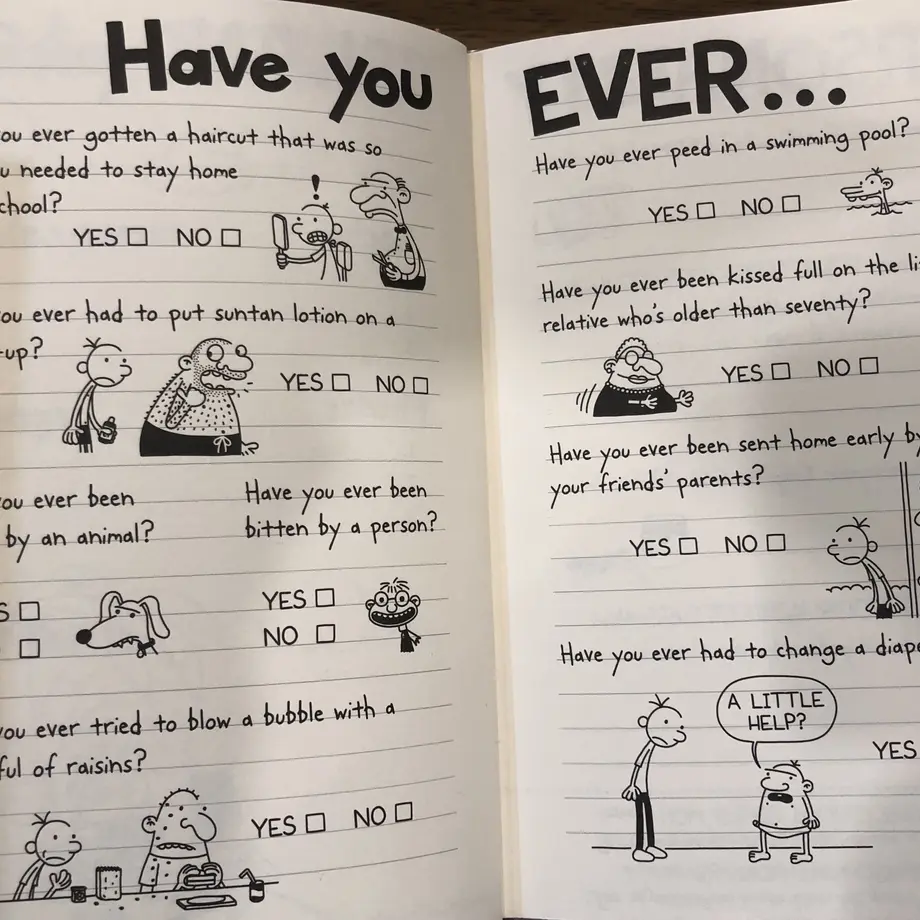 Have you
ou ever gotten a haircut that was so
u needed to stay home
chool?
YES NO
ou ever had to put suntan lotion on a
-up?
YES NO
ou ever been
by an animal?
S
Have you ever been
bitten by a person?
YES
NO
you ever tried to blow a bubble with a
ful of raisins?
YES NO
EVER...
Have you ever peed in a swimming pool?
YES NO
Have you ever been kissed full on the li
relative who's older than seventy?
YES NO
Have you ever been sent home early by
your friends' parents?
YES NO
Have you ever had to change a diape
A LITTLE
HELP?
YES